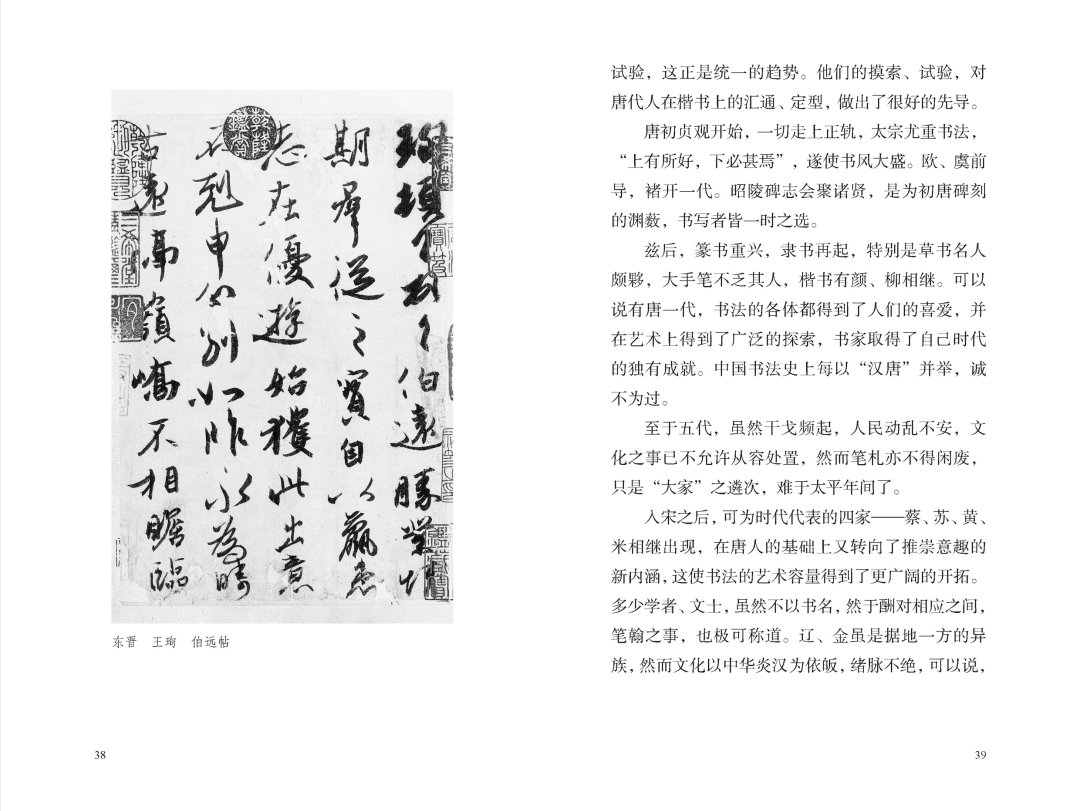 珣頓首頓首伯遠勝業情
期羣從之寶自以羸患
志在優遊始獲此出意
不剋申分別如昨永為疇
古遠隔嶺嶠不相瞻臨
东晋 王珣 伯远帖
38
试验，这正是统一的趋势。他们的摸索、试验，对
唐代人在楷书上的汇通、定型，做出了很好的先导。
唐初贞观开始，一切走上正轨，太宗尤重书法，
“上有所好，下必甚焉”，遂使书风大盛。欧、虞前
导，褚开一代。昭陵碑志会聚诸贤，是为初唐碑刻
的渊薮，书写者皆一时之选。
兹后，篆书重兴，隶书再起，特别是草书名人
颇夥，大手笔不乏其人，楷书有颜、柳相继。可以
说有唐一代，书法的各体都得到了人们的喜爱，并
在艺术上得到了广泛的探索，书家取得了自己时代
的独有成就。中国书法史上每以“汉唐”并举，诚
不为过。
至于五代，虽然干戈频起，人民动乱不安，文
化之事已不允许从容处置，然而笔札亦不得闲废，
只是“大家”之遴次，难于太平年间了。
入宋之后，可为时代代表的四家——蔡、苏、黄、
米相继出现，在唐人的基础上又转向了推崇意趣的
新内涵，这使书法的艺术容量得到了更广阔的开拓。
多少学者、文士，虽然不以书名，然于酬对相应之间，
笔翰之事，也极可称道。辽、金虽是据地一方的异
族，然而文化以中华炎汉为依皈，绪脉不绝，可以说，
39